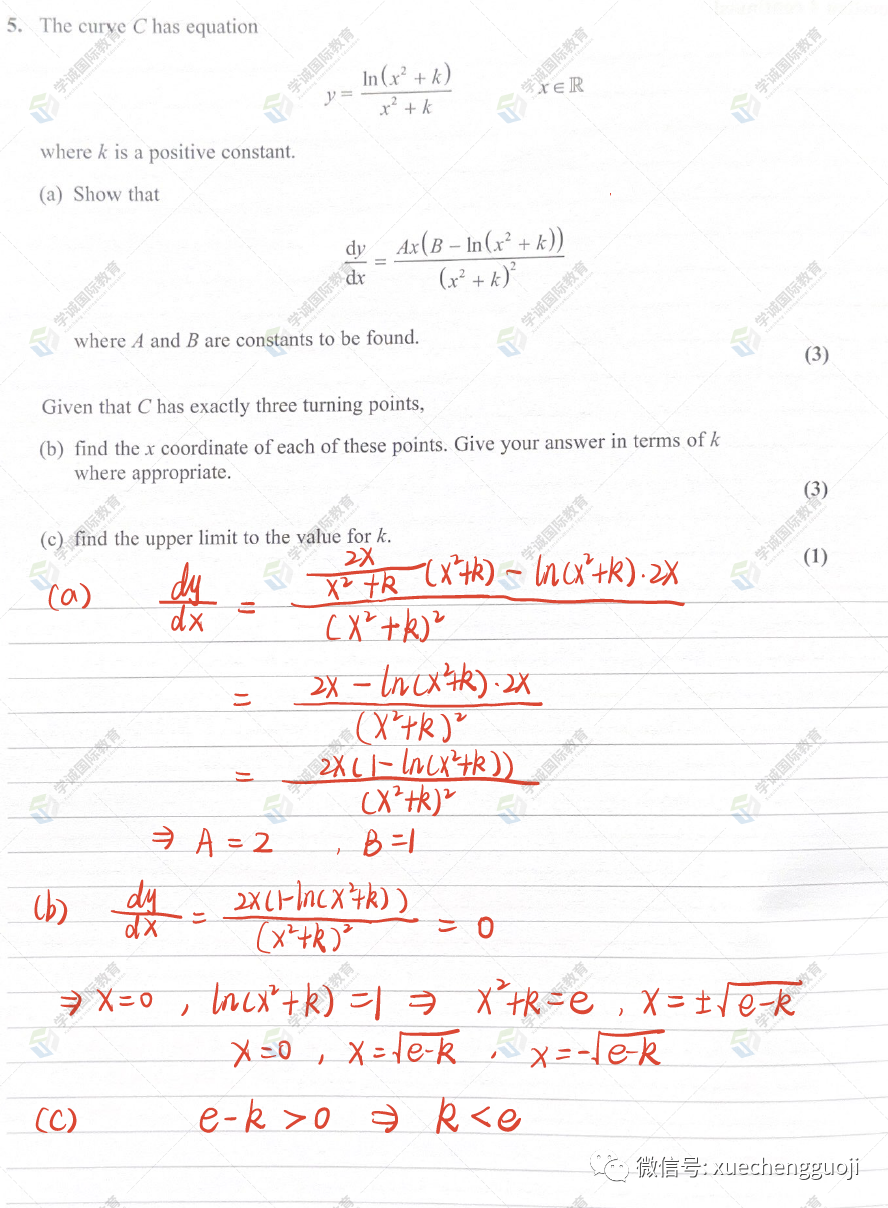 5. The curve C has equation
y = ln(x² + k) / (x² + k)    x ∈ ℝ
where k is a positive constant.
(a) Show that
dy/dx = Ax(B − ln(x² + k)) / (x² + k)²
where A and B are constants to be found.
(3)
Given that C has exactly three turning points,
(b) find the x coordinate of each of these points. Give your answer in terms of k
where appropriate.
(3)
(c) find the upper limit to the value for k.
(1)
(a) dy/dx = (2x/(x²+k) (x²+k) − ln(x²+k)·2x) / (x²+k)²
= (2x − ln(x²+k)·2x) / (x²+k)²
= 2x(1−ln(x²+k)) / (x²+k)²
⇒ A = 2 , B = 1
(b) dy/dx = 2x(1−ln(x²+k)) / (x²+k)² = 0
⇒ x=0 , ln(x²+k) = 1 ⇒ x²+k = e , x = ±√(e−k)
x=0 , x=√(e−k) , x=−√(e−k)
(c) e−k > 0 ⇒ k < e
微信号: xuechengguoji
学诚国际教育